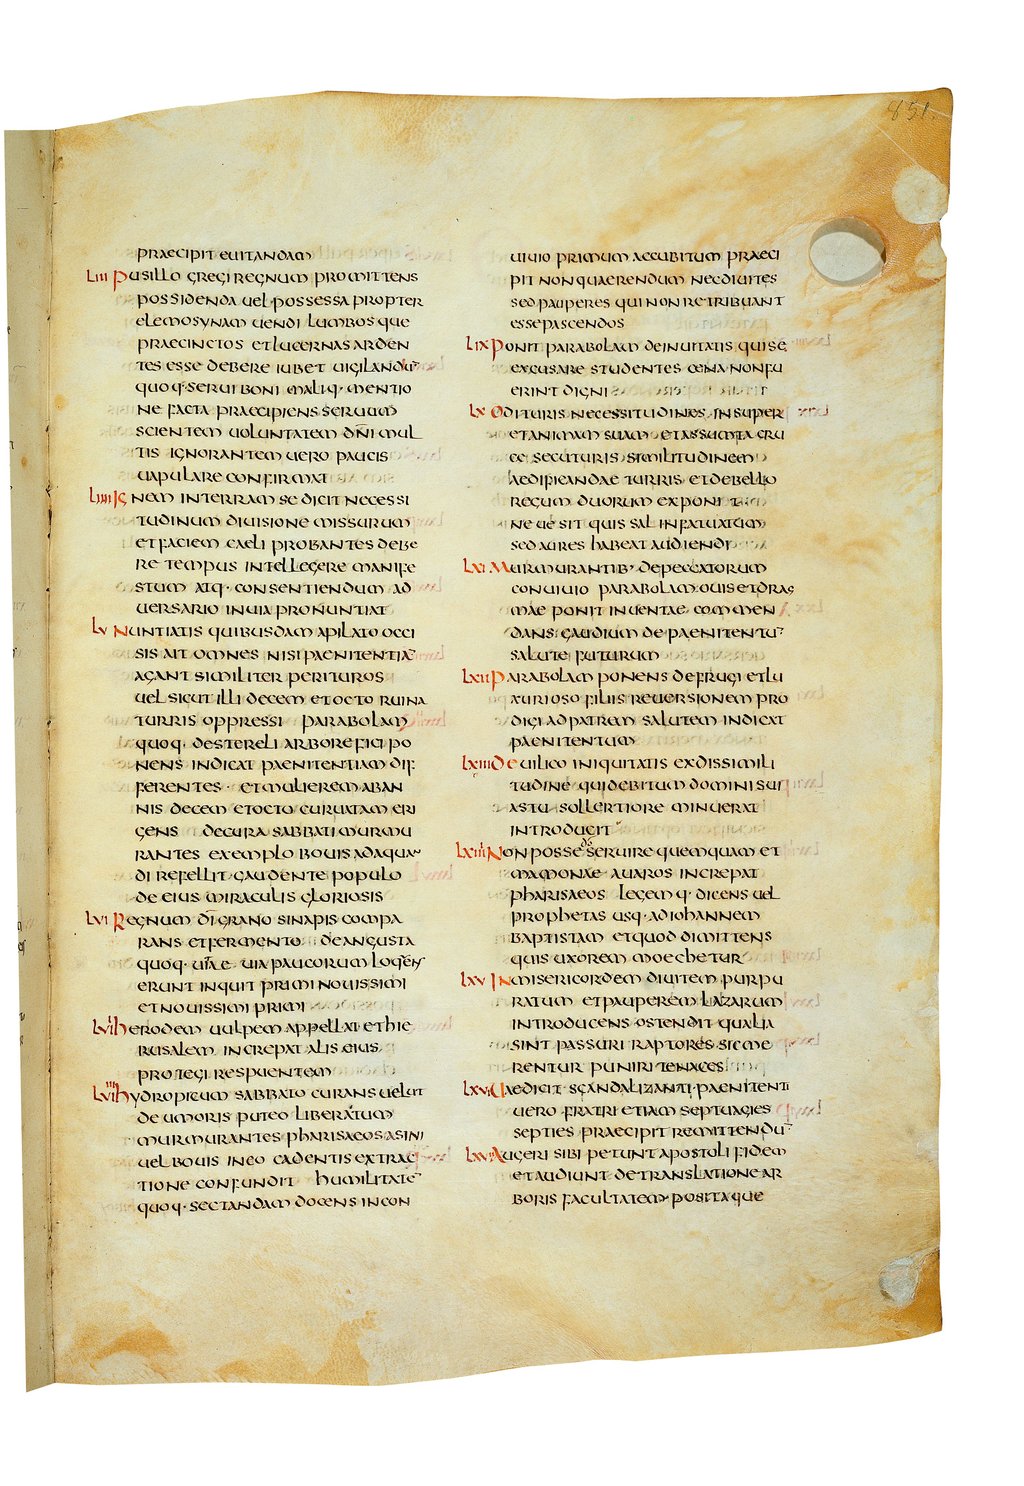 851.
praecipit euitandam
LIII Pusillo gregi regnum promittens
possidenda uel possessa propter
elemosynam uendi lumbosque
praecinctos et lucernas arden
tes esse debere iubet uigilandū
quoq· serui boni maliq· mentio
ne facta praecipiens seruum
scientem uoluntatem dn̄i mul
tis ignorantem uero paucis
uapulare confirmat
LIIII Ignem in terram se dicit necessi
tudinum diuisione missurum
et faciem caeli probantes debe
re tempus intellegere manife
stum atq· consentiendum ad
uersario in uia pronuntiat
LV Nuntiatis quibusdam a pilato occi
sis ait omnes nisi paenitentiā
agant similiter perituros
uel sicut illi decem et octo ruina
turris oppressi parabolam
quoq· de stereli arbore fici po
nens indicat paenitentiam dif
ferentes· et mulierem ab an
nis decem et octo curuatam eri
gens de cura sabbati murmu
rantes exemplo bouis adaquan
di refellit gaudente populo
de eius miraculis gloriosis
LVI Regnum dī grano sinapis compa
rans et fermento de angusta
quoq· uitae uia paucorum loquens
erunt inquit primi nouissimi
et nouissimi primi
LVII Herodem uulpem appellat et hie
rusalem increpat alis eius
protegi respuentem
LVIII Hydropicum sabbato curans uelut
de umoris puteo liberatum
murmurantes pharisaeos asini
uel bouis in eo cadentis extrac
tione confundit humilitatē
quoq· sectandam docens in con
uiuio primum accubitum praeci
pit non quaerendum nec diuites
sed pauperes qui non retribuant
esse pascendos
LIX Ponit parabolam de inuitatis qui se
excusare studentes cena non fu
erint digni
LX Odituris necessitudines insuper
et animam suam et assumta cru
ce secuturis similitudinem
aedificandae turris et de bello
regum duorum exponit
ne uē sit quis sal infatuatum
sed aures habeat audiendi
LXI Murmurantib· de peccatorum
conuiuio parabolam ouis et drag
mae ponit inuentae commen
dans gaudium de paenitentū
salute futurum
LXII Parabolam ponens de frugi et lu
xurioso filiis reuersionem pro
digi ad patrem salutem indicat
paenitentum
LXIII De uilico iniquitatis ex dissimili
tudinē qui debitum domini sui
astu sollertiore minuerat
introducit
LXIIII Non posse dō seruire quemquam et
mamonae auaros increpat
pharisaeos legemq· dicens uel
prophetas usq· ad iohannem
baptistam et quod dimittens
quis uxorem moechetur
LXV Inmisericordem diuitem purpu
ratum et pauperem lazarum
introducens ostendit qualia
sint passuri raptores sic me
rentur puniri tenaces
LXVI Uae dicit scandalizanti paenitenti
uero fratri etiam septuagies
septies praecipit remittendū
LXVII Augeri sibi petunt apostoli fidem
et audiunt de translatione ar
boris facultatem positaque